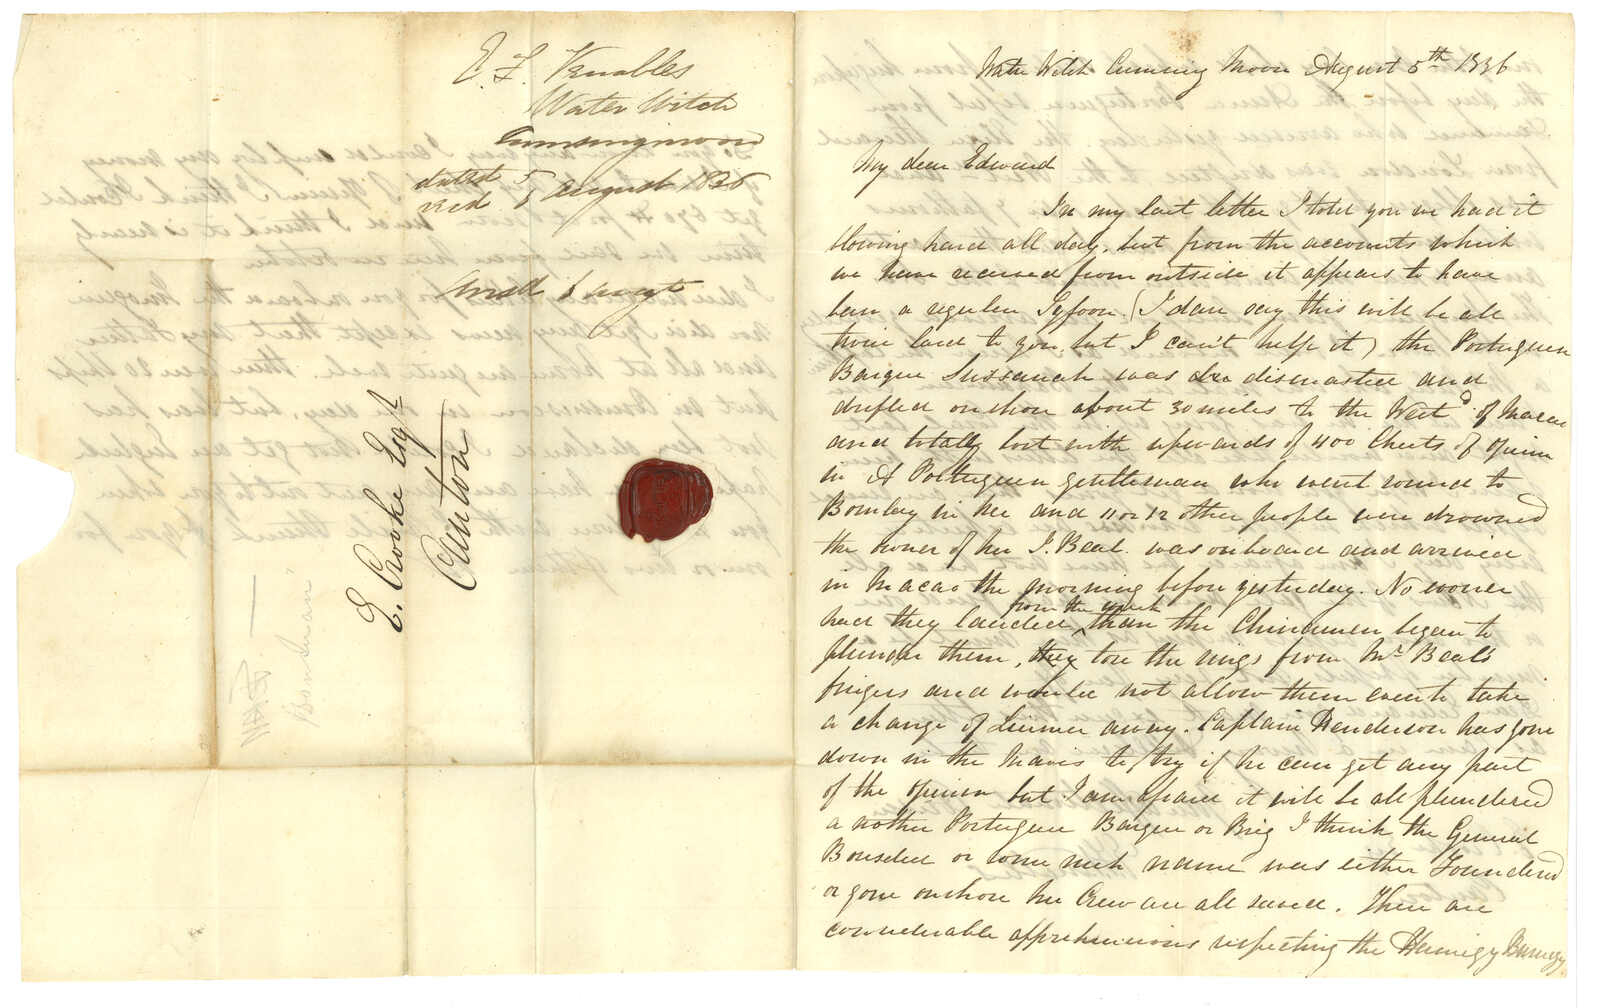 E. F. Venables
Water Witch
Cumsingmoon
dated 5
recd 8 August 1836
Ansd 8 Augt
E. Crooke Esqr
Canton
Bombean
Water Witch Cumsing Moon August 5th 1836
My dear Edward
In my last letter I told you we had it
blowing hard all day, but from the accounts which
we have received from outside it appears to have
been a regular Tyfoon. (I dare say this will be all
twice laid to you, but I can't help it) the Portuguese
Barque Sussanah was dismasted and
drifted onshore about 30 miles to the Westd of Macao
and totally lost with upwards of 400 Chests of opium
in A Portuguese gentleman who went round to
Bombay in her and 11 or 12 other people were drowned
the owner of her J. Beal. was onboard and arrived
in Macao the morning before yesterday. No sooner
had they landed from the wreck than the Chinamen began to
plunder them, they tore the rings from Mr Beal's
fingers and would not allow them even to take
a change of Linnen away. Captain Henderson has gone
down in the Mavis to try if he can get any part
of the opium but I am afraid it will be all plundered
a nother Portuguese Barque or Brig I think the General
or some such name was either Foundered
or gone onshore her Crew are all saved. There are
considerable apprehensions respecting the Hormusjee Bomanjee